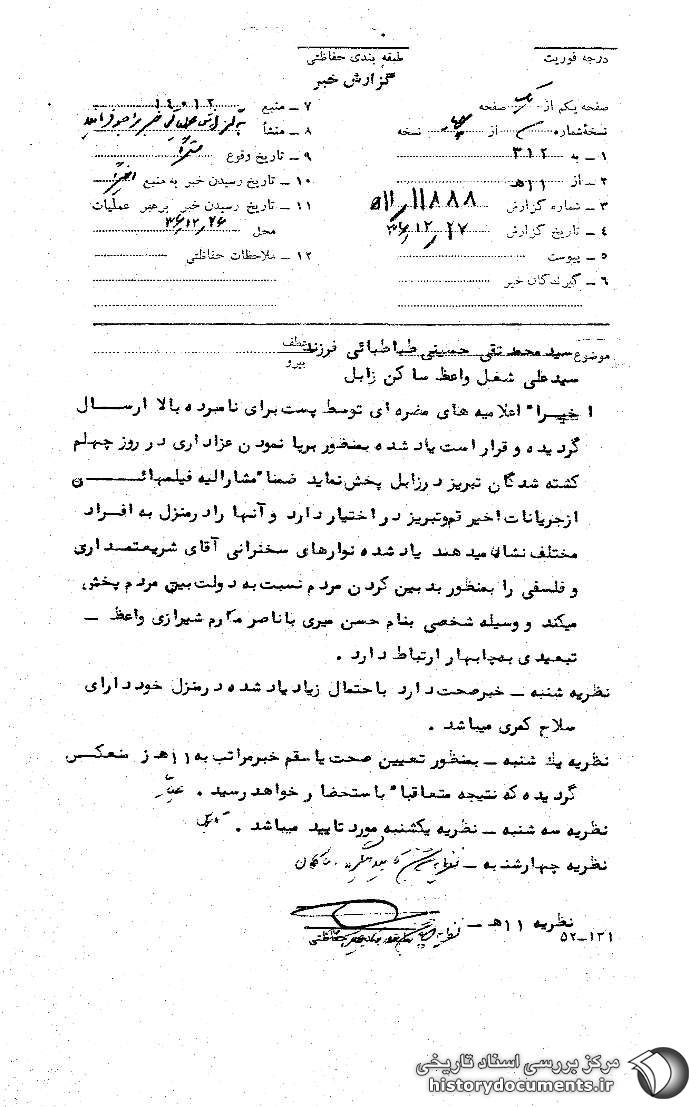 درجه فوریت
طبقه بندی حفاظتی
گزارش خبر
صفحه یکم از یک صفحه
نسخه شماره از چهار نسخه
۱ ــ به ۳۱۲
۲ ــ از ۱۱هـ
۳ ــ شماره گزارش ۱۱۸۸۸/۵۱۱
۴ ــ تاریخ گزارش ۳۶/۱۲/۲۷
۵ ــ پیوست
۶ ــ گیرندگان خبر
۷ ــ منبع ۱۴۰۱۲
۸ ــ منشأ به گزارش عملیاتی خبر مراجعه فرمائید
۹ ــ تاریخ وقوع
۱۰ ــ تاریخ رسیدن خبر به منبع اخیراً
۱۱ ــ تاریخ رسیدن خبر برهبر عملیات
محل ۳۶/۱۲/۲۶
۱۲ ــ ملاحظات حفاظتی
موضوع سید محمد تقی حسینی طباطبائی فرزند
عطف
پیرو
سیدعلی شغل واعظ ساکن زابل
اخیرا" اعلامیه های مضره ای توسط پست برای نامبرده بالا ارسال
گردیده و قرار است یاد شده بمنظور برپا نمودن عزاداری در روز چهلم
کشته شدگان تبریز در زابل پخش نماید ضمنا" مشارالیه فیلمهائــن
ازجریانات اخیر قم وتبریز در اختیار دارد و آنها را در منزل به افراد
مختلف نشان میدهند یاد شده نوارهای سخنرانی آقای شریعتمداری
و فلسفی را بمنظور بدبین کردن مردم نسبت به دولت بین مردم پخش
میکند و وسیله شخصی بنام حسن میری با ناصر مکارم شیرازی واعظ ــ
تبعیدی به چابهار ارتباط دارد .
نظریه شنبه ــ خبر صحت دارد با احتمال زیاد یاد شده در منزل خود دارای
سلاح کمری میباشد .
نظریه یک شنبه ــ بمنظور تعیین صحت یا سقم خبر مراتب به ۱۱هـ ز منعکس
گردیده که نتیجه متعاقبا" باستحضار خواهد رسید .
نظریه سه شنبه ــ نظریه یکشنبه مورد تایید میباشد .
نظریه چهارشنبه ــ
نظریه ۱۱هـ ــ
۵۲-۱۳۱
حفاظتی
مرکز بررسی اسناد تاریخی
historydocuments.ir